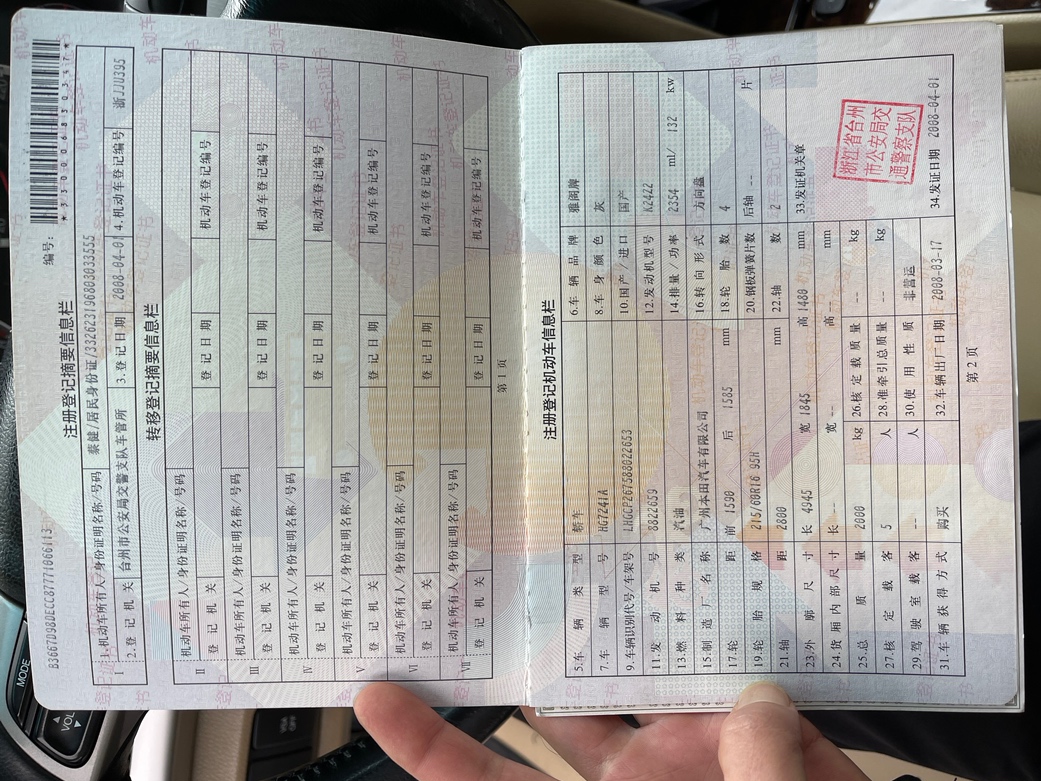 编号:
*330006830347*
B3667D98DECC877710661131
注册登记摘要信息栏
I
1.机动车所有人/身份证明名称/号码 蔡健/居民身份证/332623196803033555
2.登记机关 台州市公安局交警支队车管所 3.登记日期 2008-04-01 4.机动车登记编号 浙JJU395
转移登记摘要信息栏
II 机动车所有人/身份证明名称/号码
登记机关 登记日期 机动车登记编号
III 机动车所有人/身份证明名称/号码
登记机关 登记日期 机动车登记编号
IV 机动车所有人/身份证明名称/号码
登记机关 登记日期 机动车登记编号
V 机动车所有人/身份证明名称/号码
登记机关 登记日期 机动车登记编号
VI 机动车所有人/身份证明名称/号码
登记机关 登记日期 机动车登记编号
VII 机动车所有人/身份证明名称/号码
登记机关 登记日期 机动车登记编号
第 1 页
注册登记机动车信息栏
5.车辆类型 轿车 6.车辆品牌 雅阁牌
7.车辆型号 HG7241A 8.车身颜色 灰
9.车辆识别代号/车架号 LHGCP267588022653 10.国产/进口 国产
11.发动机号 8822659 12.发动机型号 K24Z2
13.燃料种类 汽油 14.排量/功率 2354 ml/ 132 kw
15.制造厂名称 广州本田汽车有限公司 16.转向形式 方向盘
17.轮距 前 1590 后 1585 mm 18.轮胎数 4
19.轮胎规格 215/60R16 95H 20.钢板弹簧片数 后轴 -- 片
21.轴距 2800 mm 22.轴数 2
23.外廓尺寸 长 4945 宽 1845 高 1480 mm
24.货厢内部尺寸 长 -- 宽 -- 高 -- mm
25.总质量 2000 kg 26.核定载质量 -- kg
27.核定载客 5 人 28.准牵引总质量 -- kg
29.驾驶室载客 -- 人 30.使用性质 非营运
31.车辆获得方式 购买 32.车辆出厂日期 2008-03-17
33.发证机关章
浙江省台州
市公安局交
通警察支队
34.发证日期 2008-04-01
第 2 页
MODE
VOL